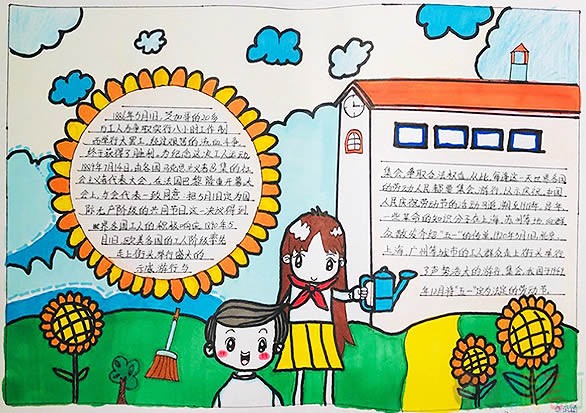 1886年5月1日,芝加哥的20多
万工人为争取实行八小时工作制
而举行大罢工,经过艰苦的流血斗争,
终于获得了胜利,为纪念这次工人运动,
1889年7月14日,由各国马克思主义者召集的社
会主义者代表大会,在法国巴黎隆重开幕大
会上,与会代表一致同意:把5月1日定为国
际无产阶级的共同节日这一决议得到
世界各国工人的积极响应,1890年5
月1日,欧美各国的工人阶级率先
走上街头,举行盛大的
示威游行与
集会,争取合法权益,从此,每逢这一天世界各国
的劳动人民都要集会,游行,以示庆祝,中国
人民庆祝劳动节的活动可追溯至1918年,是年
一些革命的知识分子在上海,苏州等地,向群
众散发介绍"五一"的传单,1920年5月1日,北京,
上海,广州等城市的工人群众走上街头举行
了声势浩大的游行,集会,我国于1949
年12月将"五一"定为法定的劳动节